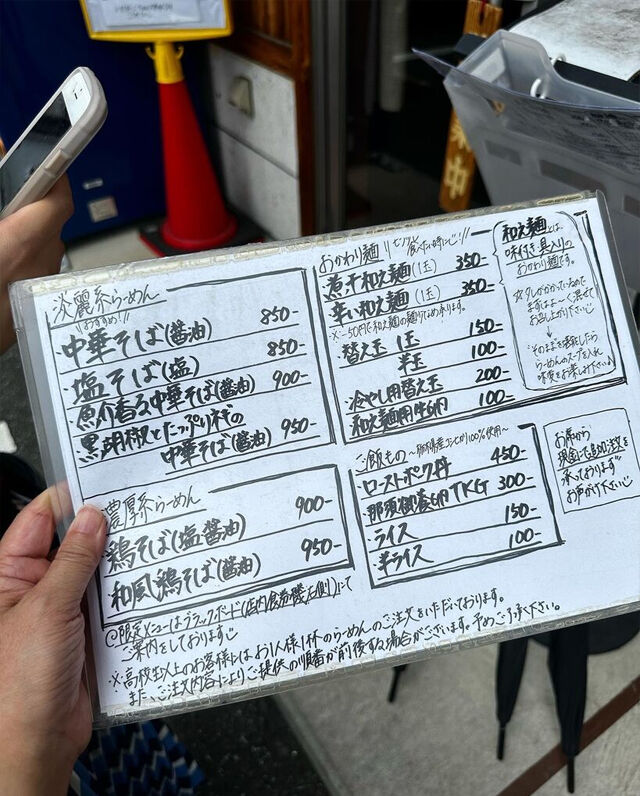 淡麗系らーめん
おすすめ!
中華そば(醤油) 850-
塩そば(塩) 850-
魚介香る中華そば(醤油) 900-
黒胡椒とたっぷりネギの
中華そば(醤油) 950-
濃厚系らーめん
鶏そば(塩・醤油) 900-
和風鶏そば(醤油) 950-
おかわり麺
煮干和え麺(1玉) 350-
辛い和え麺(1玉) 350-
替え玉 1玉 150-
半玉 100-
冷やし用替え玉 200-
和え麺用生卵 100-
和え麺とは、
味付き具入りの
おかわり麺です。
☆タレがかかっているので
まずはよーく混ぜて
お召し上がりください
ご飯もの
ローストポーク丼 450-
那須御養卵TKG 300-
ライス 150-
半ライス 100-
お席から
現金でも追加注文を
承っております
お声がけ下さい
◎限定メニューはブラックボード(店内食券機左側)にて
ご案内をしております
※高校生以上のお客様にはお1人様1杯のらーめんのご注文をいただいております。
また、ご注文内容によりご提供の順番が前後する場合がございます。予めご了承ください。